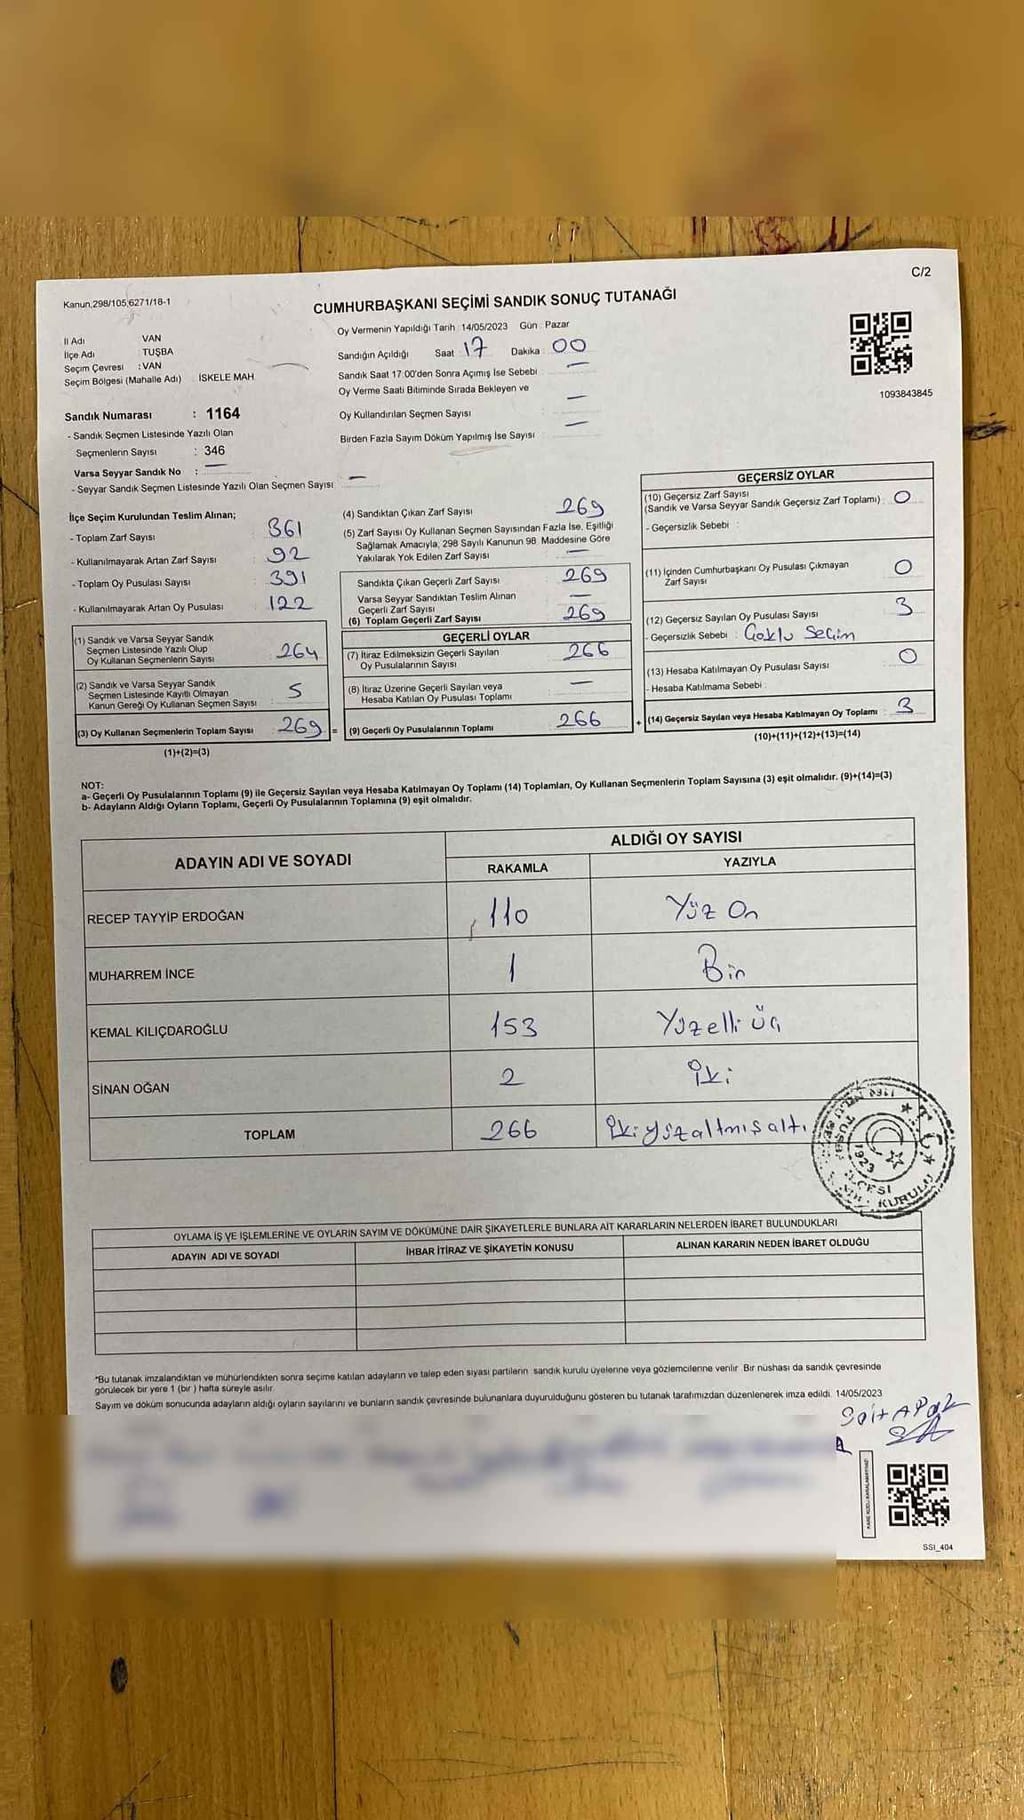 C/2
Kanun.298/105,6271/18-1
CUMHURBAŞKANI SEÇİMİ SANDIK SONUÇ TUTANAĞI
İl Adı VAN
İlçe Adı : TUŞBA
Seçim Çevresi : VAN
Seçim Bölgesi (Mahalle Adı) İSKELE MAH
Oy Vermenin Yapıldığı Tarih : 14/05/2023 Gün : Pazar
Sandığın Açıldığı Saat 17 Dakika 00
Sandık Saat 17:00'den Sonra Açımış İse Sebebi —
Oy Verme Saati Bitiminde Sırada Bekleyen ve
Oy Kullandırılan Seçmen Sayısı —
Birden Fazla Sayım Döküm Yapılmış İse Sayısı —
1093843845
Sandık Numarası : 1164
- Sandık Seçmen Listesinde Yazılı Olan
Seçmenlerin Sayısı : 346
Varsa Seyyar Sandık No : —
- Seyyar Sandık Seçmen Listesinde Yazılı Olan Seçmen Sayısı : —
İlçe Seçim Kurulundan Teslim Alınan;
- Toplam Zarf Sayısı : 361
- Kullanılmayarak Artan Zarf Sayısı : 92
- Toplam Oy Pusulası Sayısı : 391
- Kullanılmayarak Artan Oy Pusulası : 122
(1) Sandık ve Varsa Seyyar Sandık
Seçmen Listesinde Yazılı Olup
Oy Kullanan Seçmenlerin Sayısı : 264
(2) Sandık ve Varsa Seyyar Sandık
Seçmen Listesinde Kayıtlı Olmayan
Kanun Gereği Oy Kullanan Seçmen Sayısı : 5
(3) Oy Kullanan Seçmenlerin Toplam Sayısı : 269 =
(1)+(2)=(3)
(4) Sandıktan Çıkan Zarf Sayısı 269
(5) Zarf Sayısı Oy Kullanan Seçmen Sayısından Fazla İse, Eşitliği
Sağlamak Amacıyla, 298 Sayılı Kanunun 98. Maddesine Göre
Yakılarak Yok Edilen Zarf Sayısı —
Sandıkta Çıkan Geçerli Zarf Sayısı 269
Varsa Seyyar Sandıktan Teslim Alınan
Geçerli Zarf Sayısı —
(6) Toplam Geçerli Zarf Sayısı 269
GEÇERLİ OYLAR
(7) İtiraz Edilmeksizin Geçerli Sayılan
Oy Pusulalarının Sayısı 266
(8) İtiraz Üzerine Geçerli Sayılan veya
Hesaba Katılan Oy Pusulası Toplamı —
(9) Geçerli Oy Pusulalarının Toplamı 266 +
GEÇERSİZ OYLAR
(10) Geçersiz Zarf Sayısı
(Sandık ve Varsa Seyyar Sandık Geçersiz Zarf Toplamı) : 0
- Geçersizlik Sebebi :
(11) İçinden Cumhurbaşkanı Oy Pusulası Çıkmayan
Zarf Sayısı 0
(12) Geçersiz Sayılan Oy Pusulası Sayısı 3
- Geçersizlik Sebebi : Çoklu Seçim
(13) Hesaba Katılmayan Oy Pusulası Sayısı 0
- Hesaba Katılmama Sebebi :
(14) Geçersiz Sayılan veya Hesaba Katılmayan Oy Toplamı : 3
(10)+(11)+(12)+(13)=(14)
NOT:
a- Geçerli Oy Pusulalarının Toplamı (9) ile Geçersiz Sayılan veya Hesaba Katılmayan Oy Toplamı (14) Toplamları, Oy Kullanan Seçmenlerin Toplam Sayısına (3) eşit olmalıdır. (9)+(14)=(3)
b- Adayların Aldığı Oyların Toplamı, Geçerli Oy Pusulalarının Toplamına (9) eşit olmalıdır.
ADAYIN ADI VE SOYADI ALDIĞI OY SAYISI
RAKAMLA YAZIYLA
RECEP TAYYİP ERDOĞAN 110 Yüz On
MUHARREM İNCE 1 Bir
KEMAL KILIÇDAROĞLU 153 Yüzelli üç
SİNAN OĞAN 2 İki
TOPLAM 266 İki yüz altmış altı
T.C.
TUŞBA
İLÇESİ
1923
KURULU
OYLAMA İŞ VE İŞLEMLERİNE VE OYLARIN SAYIM VE DÖKÜMÜNE DAİR ŞİKAYETLERLE BUNLARA AİT KARARLARIN NELERDEN İBARET BULUNDUKLARI
ADAYIN ADI VE SOYADI İHBAR İTİRAZ VE ŞİKAYETİN KONUSU ALINAN KARARIN NEDEN İBARET OLDUĞU
*Bu tutanak imzalandıktan ve mühürlendikten sonra seçime katılan adayların ve talep eden siyasi partilerin sandık kurulu üyelerine veya gözlemcilerine verilir. Bir nüshası da sandık çevresinde
görülecek bir yere 1 (bir) hafta süreyle asılır.
Sayım ve döküm sonucunda adayların aldığı oyların sayılarını ve bunların sandık çevresinde bulunanlara duyurulduğunu gösteren bu tutanak tarafımızdan düzenlenerek imza edildi. 14/05/2023
SSI_404